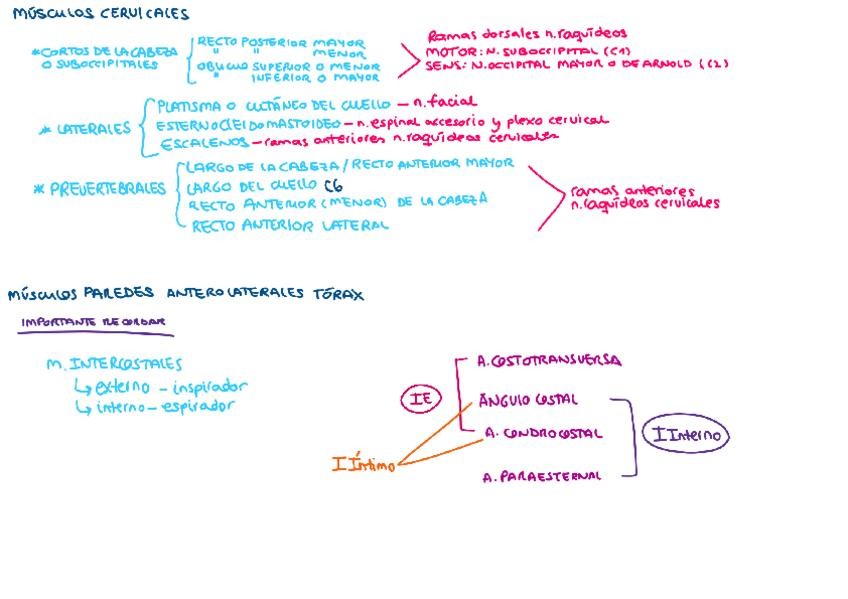 MÚSCULOS CERVICALES
* CORTOS DE LA CABEZA
O SUBOCCIPITALES
RECTO POSTERIOR MAYOR
" " MENOR
OBLICUO SUPERIOR O MENOR
" INFERIOR O MAYOR
Ramas dorsales n.raquídeos
MOTOR: N. SUBOCCIPITAL (C1)
SENS: N.OCCIPITAL MAYOR O DE ARNOLD (C2)
* LATERALES
PLATISMA O CUTÁNEO DEL CUELLO – n.facial
ESTERNOCLEIDOMASTOIDEO – n.espinal accesorio y plexo cervical
ESCALENOS – ramas anteriores n.raquídeos cervicales
* PREVERTEBRALES
LARGO DE LA CABEZA / RECTO ANTERIOR MAYOR
LARGO DEL CUELLO C6
RECTO ANTERIOR (MENOR) DE LA CABEZA
RECTO ANTERIOR LATERAL
ramas anteriores
n.raquídeos cervicales
MÚSCULOS PAREDES ANTEROLATERALES TÓRAX
IMPORTANTE RECORDAR
M. INTERCOSTALES
↳ externo – inspirador
↳ interno – espirador
IE
A. COSTOTRANSVERSA
ÁNGULO COSTAL
A. CONDROCOSTAL
A. PARAESTERNAL
I Interno
I Íntimo